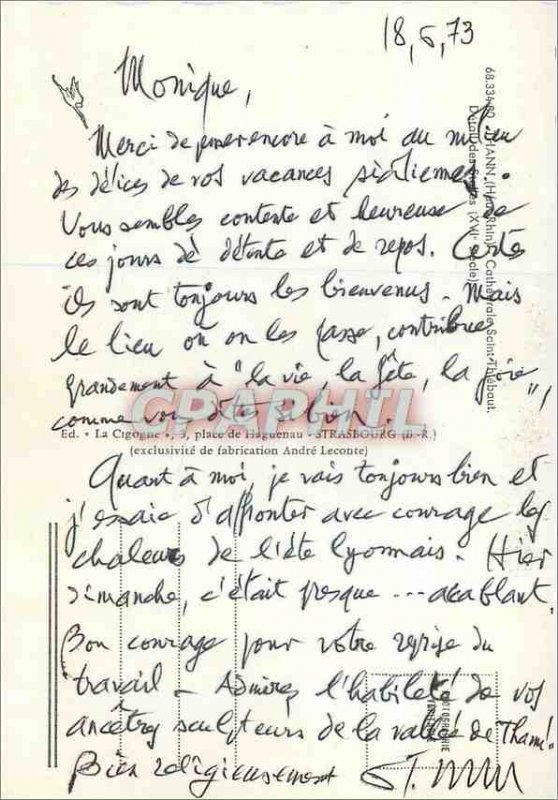 18,6,73
Monique,
Merci de penser encore à moi au milieu
des délices de vos vacances siciliennes.
Vous semblez contente et heureuse de
ces jours de détente et de repos. Certes
ils sont toujours les bienvenus. Mais
le lieu où on les passe, contribue
grandement à "la vie, la fête, la joie",
comme vous dites si bien.
CPAPHIL
Ed. • La Cigogne •, 3, place de Haguenau - STRASBOURG (B.-R.)
(exclusivité de fabrication André Leconte)
Quant à moi, je vais toujours bien et
j'essaie d'affronter avec courage les
chaleurs de l'été lyonnais. Hier
dimanche, c'était presque ... accablant.
Bon courage pour votre reprise du
travail - Admirez l'habileté de vos
ancêtres sculpteurs de la vallée de Thann!
Bien religieusement
68.334.80 THANN (Haut-Rhin) Cathédrale Saint-Thiébaut.
Détail des Stalles (XVIe Siècle)
PHOTOGRAPHIE